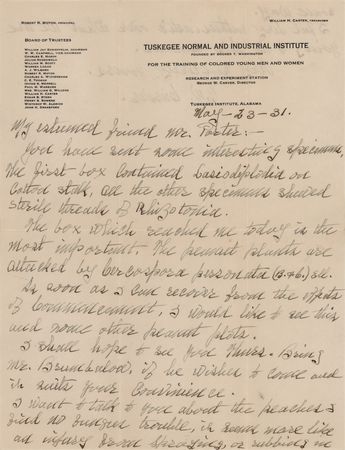 ROBERT R. MOTON, PRINCIPAL
WILLIAM H. CARTER, TREASURER
BOARD OF TRUSTEES
TUSKEGEE NORMAL AND INDUSTRIAL INSTITUTE
FOUNDED BY BOOKER T. WASHINGTON
FOR THE TRAINING OF COLORED YOUNG MEN AND WOMEN
RESEARCH AND EXPERIMENT STATION
GEORGE W. CARVER, DIRECTOR
TUSKEGEE INSTITUTE, ALABAMA
WILLIAM JAY SCHIEFFELIN, CHAIRMAN
W. W. CAMPBELL, VICE CHAIRMAN
CHARLES E. MASON
JULIUS ROSENWALD
WILLIAM M. SCOTT
WARREN LOGAN
A. J. WILBORN
ROBERT R. MOTON
PAUL M. WARBURG
May-23-31.
My esteemed friend Mr. Porter:-
You have sent some interesting specimens,
The first box contained basiodiplodia on
Cotton stalk, all the other specimens showed
sterile threads of Rhizotonia.
The box which reached me today is the
most important. The peanut plants are
attacked by Cercospora personata (B.&C.) Ell.
As soon as I can recover from the effects
of Commencement, I would like to see this
and some other peanut plots.
I shall hope to see you Thurs. Bring
Mr. if he wishes to come and
it suits your Convinience.
I want to talk to you about the peaches I
find no fungus trouble, it seems more like
an injury from spraying, or rubbing in